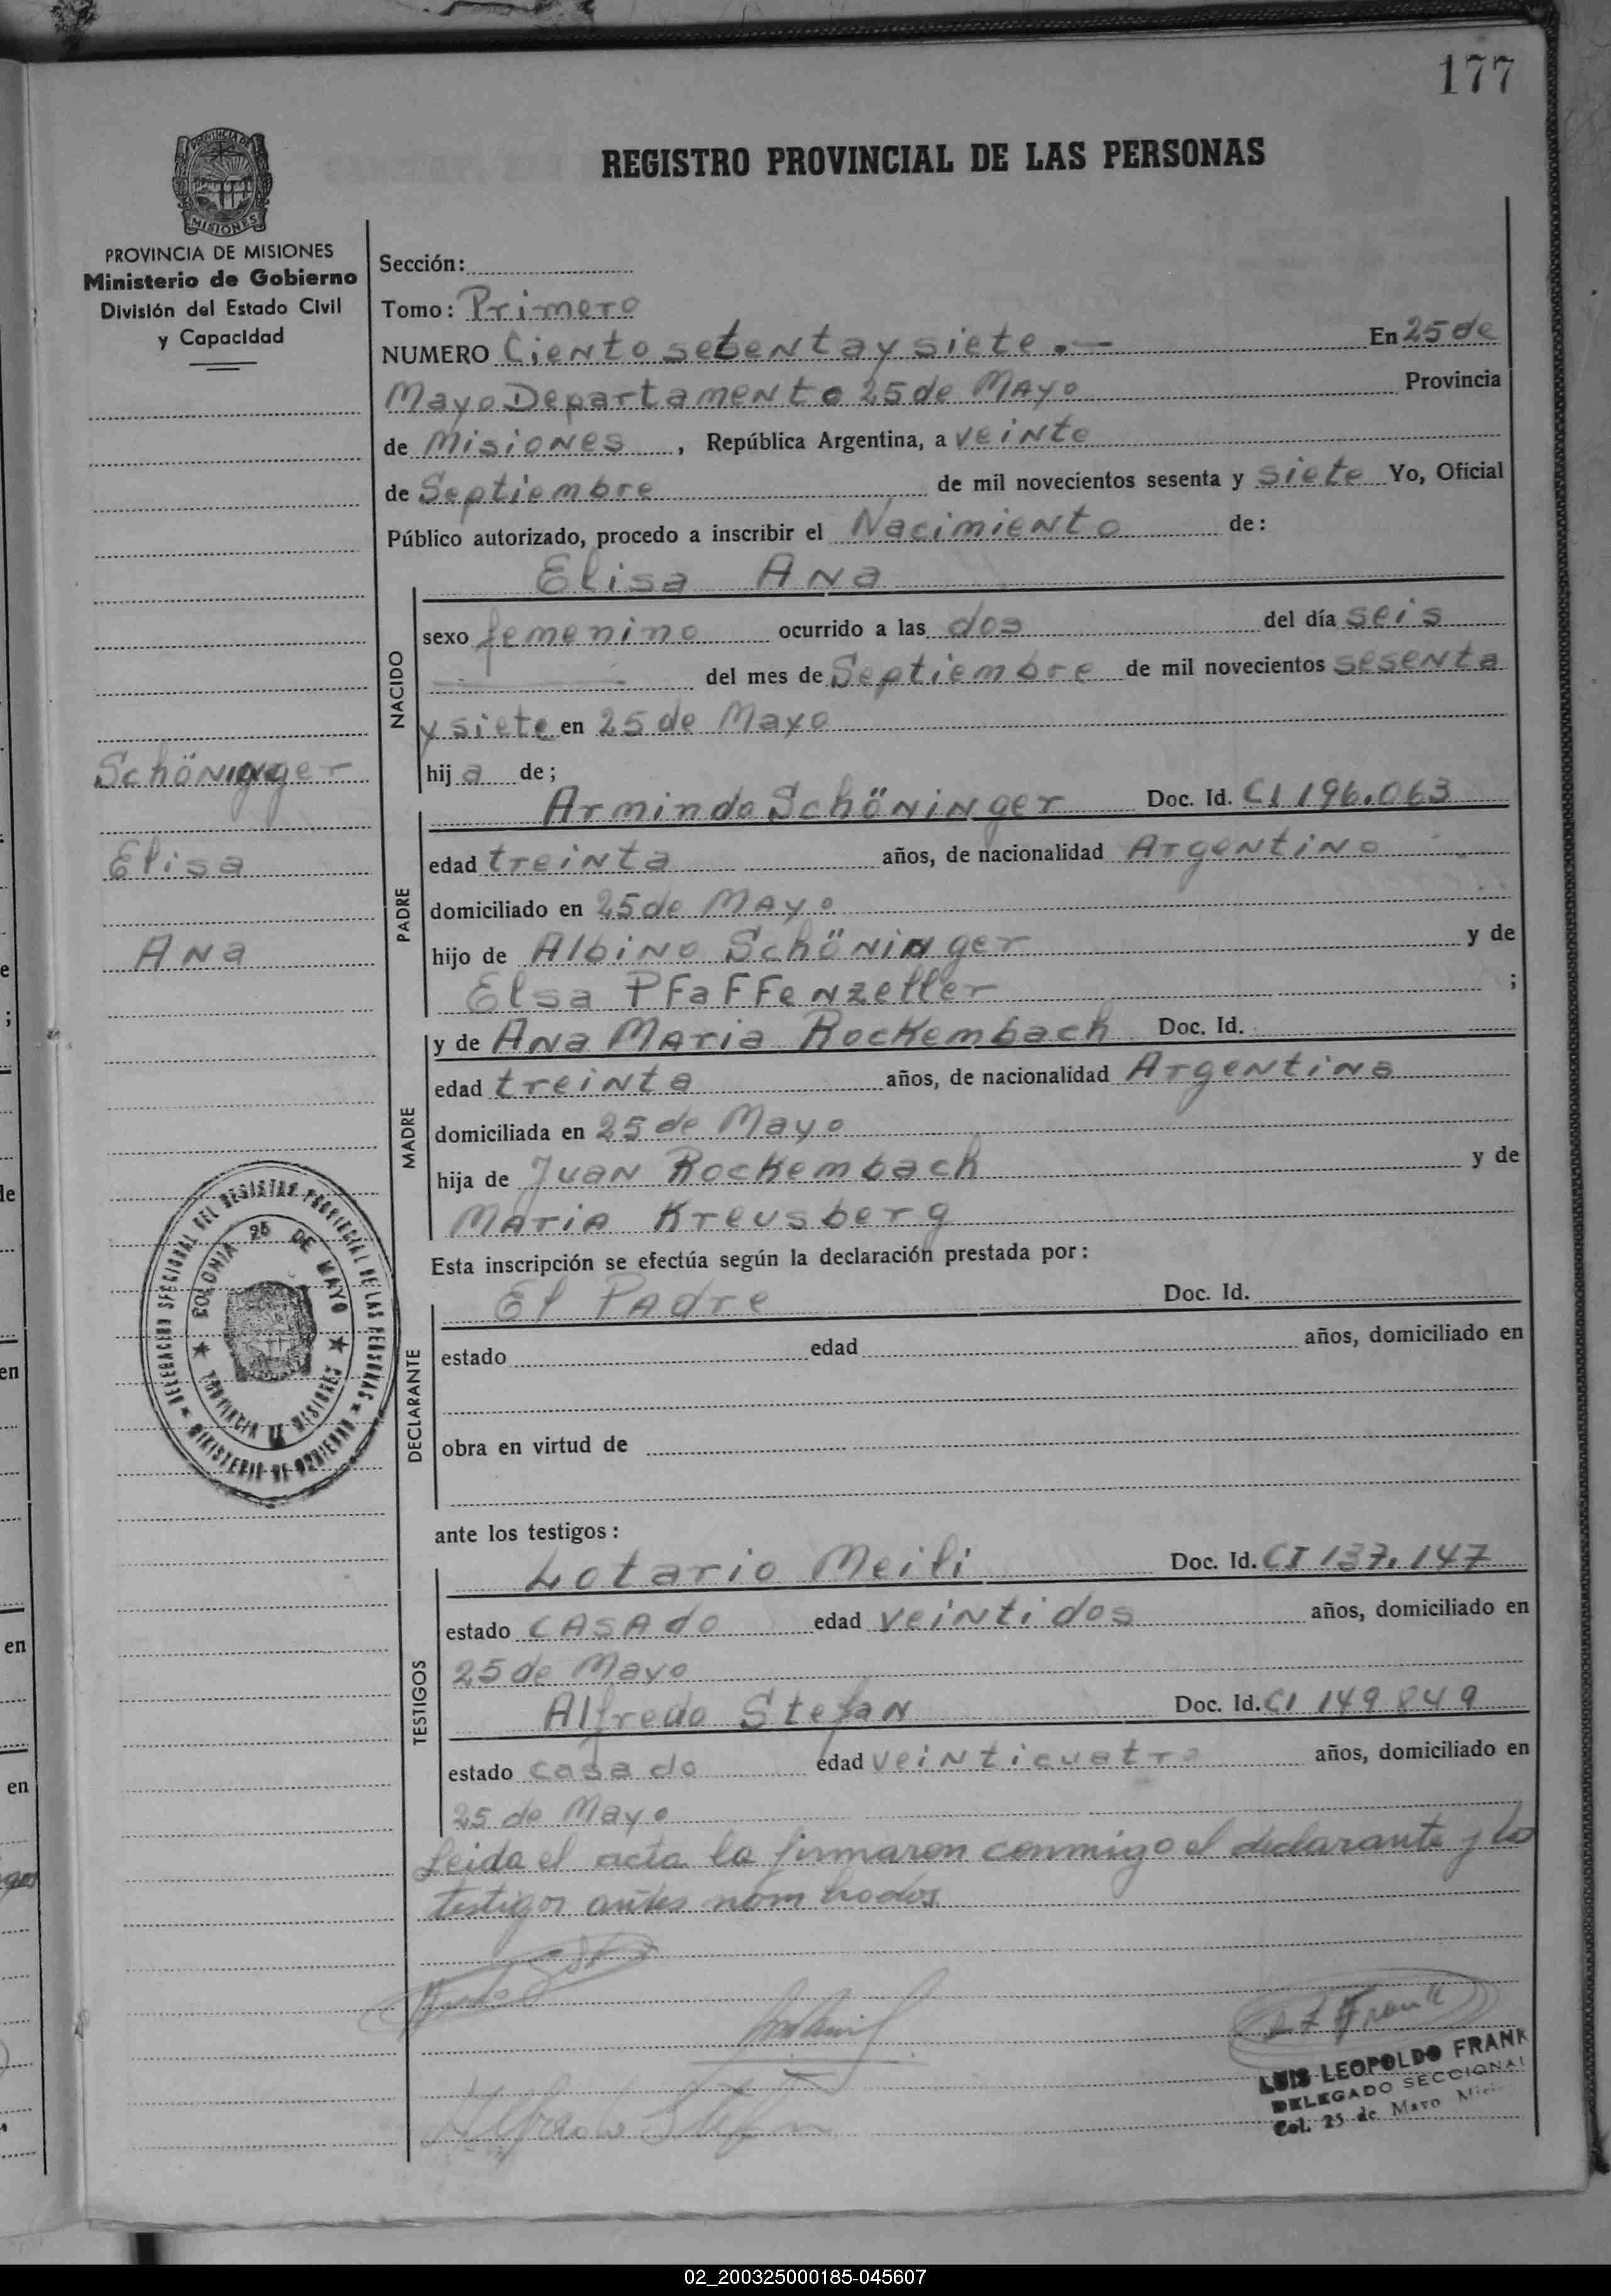 177
REGISTRO PROVINCIAL DE LAS PERSONAS
PROVINCIA DE
MISIONES
PROVINCIA DE MISIONES
Ministerio de Gobierno
División del Estado Civil
y Capacidad
Schöninger
Elisa
Ana
Sección:
Tomo: Primero
NUMERO Ciento setenta y siete.— En 25 de
Mayo Departamento 25 de Mayo Provincia
de Misiones, República Argentina, a veinte
de Septiembre de mil novecientos sesenta y siete Yo, Oficial
Público autorizado, procedo a inscribir el Nacimiento de:
Elisa Ana
NACIDO
sexo femenino ocurrido a las dos del día seis
del mes de Septiembre de mil novecientos sesenta
y siete en 25 de Mayo
hija de;
Armindo Schöninger Doc. Id. CI 196.063
PADRE
edad treinta años, de nacionalidad Argentino
domiciliado en 25 de Mayo
hijo de Albino Schöninger y de
Elsa Pfaffenzeller ;
y de Ana Maria Rockembach Doc. Id.
MADRE
edad treinta años, de nacionalidad Argentina
domiciliada en 25 de Mayo
hija de Juan Rockembach y de
Maria Kreusberg
Esta inscripción se efectúa según la declaración prestada por:
El Padre Doc. Id.
DECLARANTE
estado edad años, domiciliado en
obra en virtud de
ante los testigos:
Lotario Meili Doc. Id. CI 137.147
TESTIGOS
estado casado edad veintidos años, domiciliado en
25 de Mayo
Alfredo Stefan Doc. Id. CI 149849
estado casado edad veinticuatro años, domiciliado en
25 de Mayo
Leida el acta la firmaron conmigo el declarante y lo
testigos antes nombrados
DELEGACION SECCIONAL DEL REGISTRO PROVINCIAL DE LAS PERSONAS
MINISTERIO DE GOBIERNO
COLONIA 25 DE MAYO
PROVINCIA DE MISIONES
Alfredo Stefan
L L Frank
LUIS LEOPOLDO FRANK
DELEGADO SECCIONAL
Col. 25 de Mayo
02_200325000185-045607